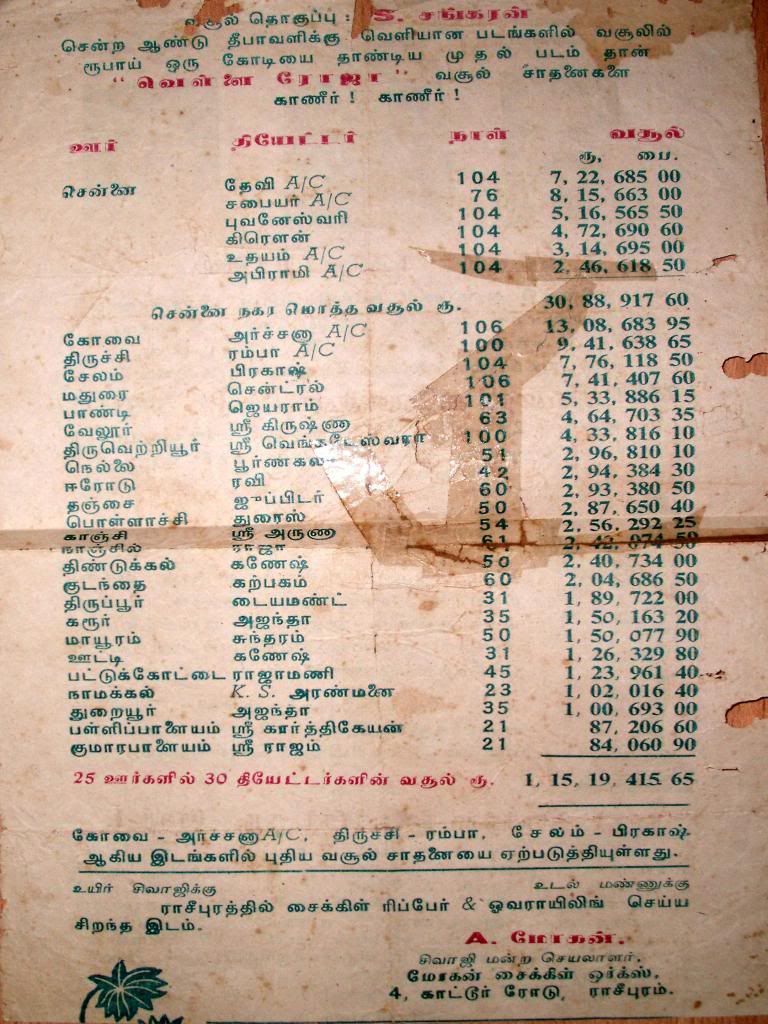 வசூல் தொகுப்பு : S. சங்கரன்
சென்ற ஆண்டு தீபாவளிக்கு வெளியான படங்களில் வசூலில்
ரூபாய் ஒரு கோடியை தாண்டிய முதல் படம் தான்
"வெள்ளை ரோஜா" வசூல் சாதனைகளை
காணீர் ! காணீர் !
ஊர் தியேட்டர் நாள் வசூல்
ரூ, பை.
சென்னை தேவி A/C 104 7, 22, 685 00
சபையர் A/C 76 8, 15, 663 00
புவனேஸ்வரி 104 5, 16, 565 50
கிரௌன் 104 4, 72, 690 60
உதயம் A/C 104 3, 14, 695 00
அபிராமி A/C 104 2, 46, 618 50
சென்னை நகர மொத்த வசூல் ரூ. 30, 88, 917 60
கோவை அர்ச்சனா A/C 106 13, 08, 683 95
திருச்சி ரம்பா A/C 100 9, 41, 638 65
சேலம் பிரகாஷ் 104 7, 76, 118 50
மதுரை சென்ட்ரல் 106 7, 41, 407 60
பாண்டி ஜெயராம் 101 5, 33, 886 15
வேலூர் ஸ்ரீ கிருஷ்ணா 63 4, 64, 703 35
திருவெற்றியூர் ஸ்ரீ வெங்கடேஸ்வரா 100 4, 33, 816 10
நெல்லை பூர்ணகலா 51 2, 96, 810 10
ஈரோடு ரவி 42 2, 94, 384 30
தஞ்சை ஜுப்பிடர் 60 2, 93, 380 50
பொள்ளாச்சி துரைஸ் 50 2, 87, 650 40
காஞ்சி ஸ்ரீ அருணா 54 2, 56, 292 25
நாஞ்சில் ராஜா 61 2, 42, 074 50
திண்டுக்கல் கணேஷ் 50 2, 40, 734 00
குடந்தை கற்பகம் 60 2, 04, 686 50
திருப்பூர் டையமண்ட் 31 1, 89, 722 00
கரூர் அஜந்தா 35 1, 50, 163 20
மாயூரம் சுந்தரம் 50 1, 50, 077 90
ஊட்டி கணேஷ் 31 1, 26, 329 80
பட்டுக்கோட்டை ராஜாமணி 45 1, 23, 961 40
நாமக்கல் K. S. அரண்மனை 23 1, 02, 016 40
துறையூர் அஜந்தா 35 1, 00, 693 00
பள்ளிப்பாளையம் ஸ்ரீ கார்த்திகேயன் 21 87, 206 60
குமாரபாளையம் ஸ்ரீ ராஜம் 21 84, 060 90
25 ஊர்களில் 30 தியேட்டர்களின் வசூல் ரூ. 1, 15, 19, 415 65
கோவை - அர்ச்சனா A/C, திருச்சி - ரம்பா, சேலம் - பிரகாஷ்
ஆகிய இடங்களில் புதிய வசூல் சாதனையை ஏற்படுத்தியுள்ளது.
உயிர் சிவாஜிக்கு உடல் மண்ணுக்கு
ராசீபுரத்தில் சைக்கிள் ரிப்பேர் & ஓவராயிலிங் செய்ய
சிறந்த இடம்.
A. மோகன்.
சிவாஜி மன்ற செயலாளர்.
மோகன் சைக்கிள் ஒர்க்ஸ்,
4, காட்டூர் ரோடு, ராசீபுரம்.